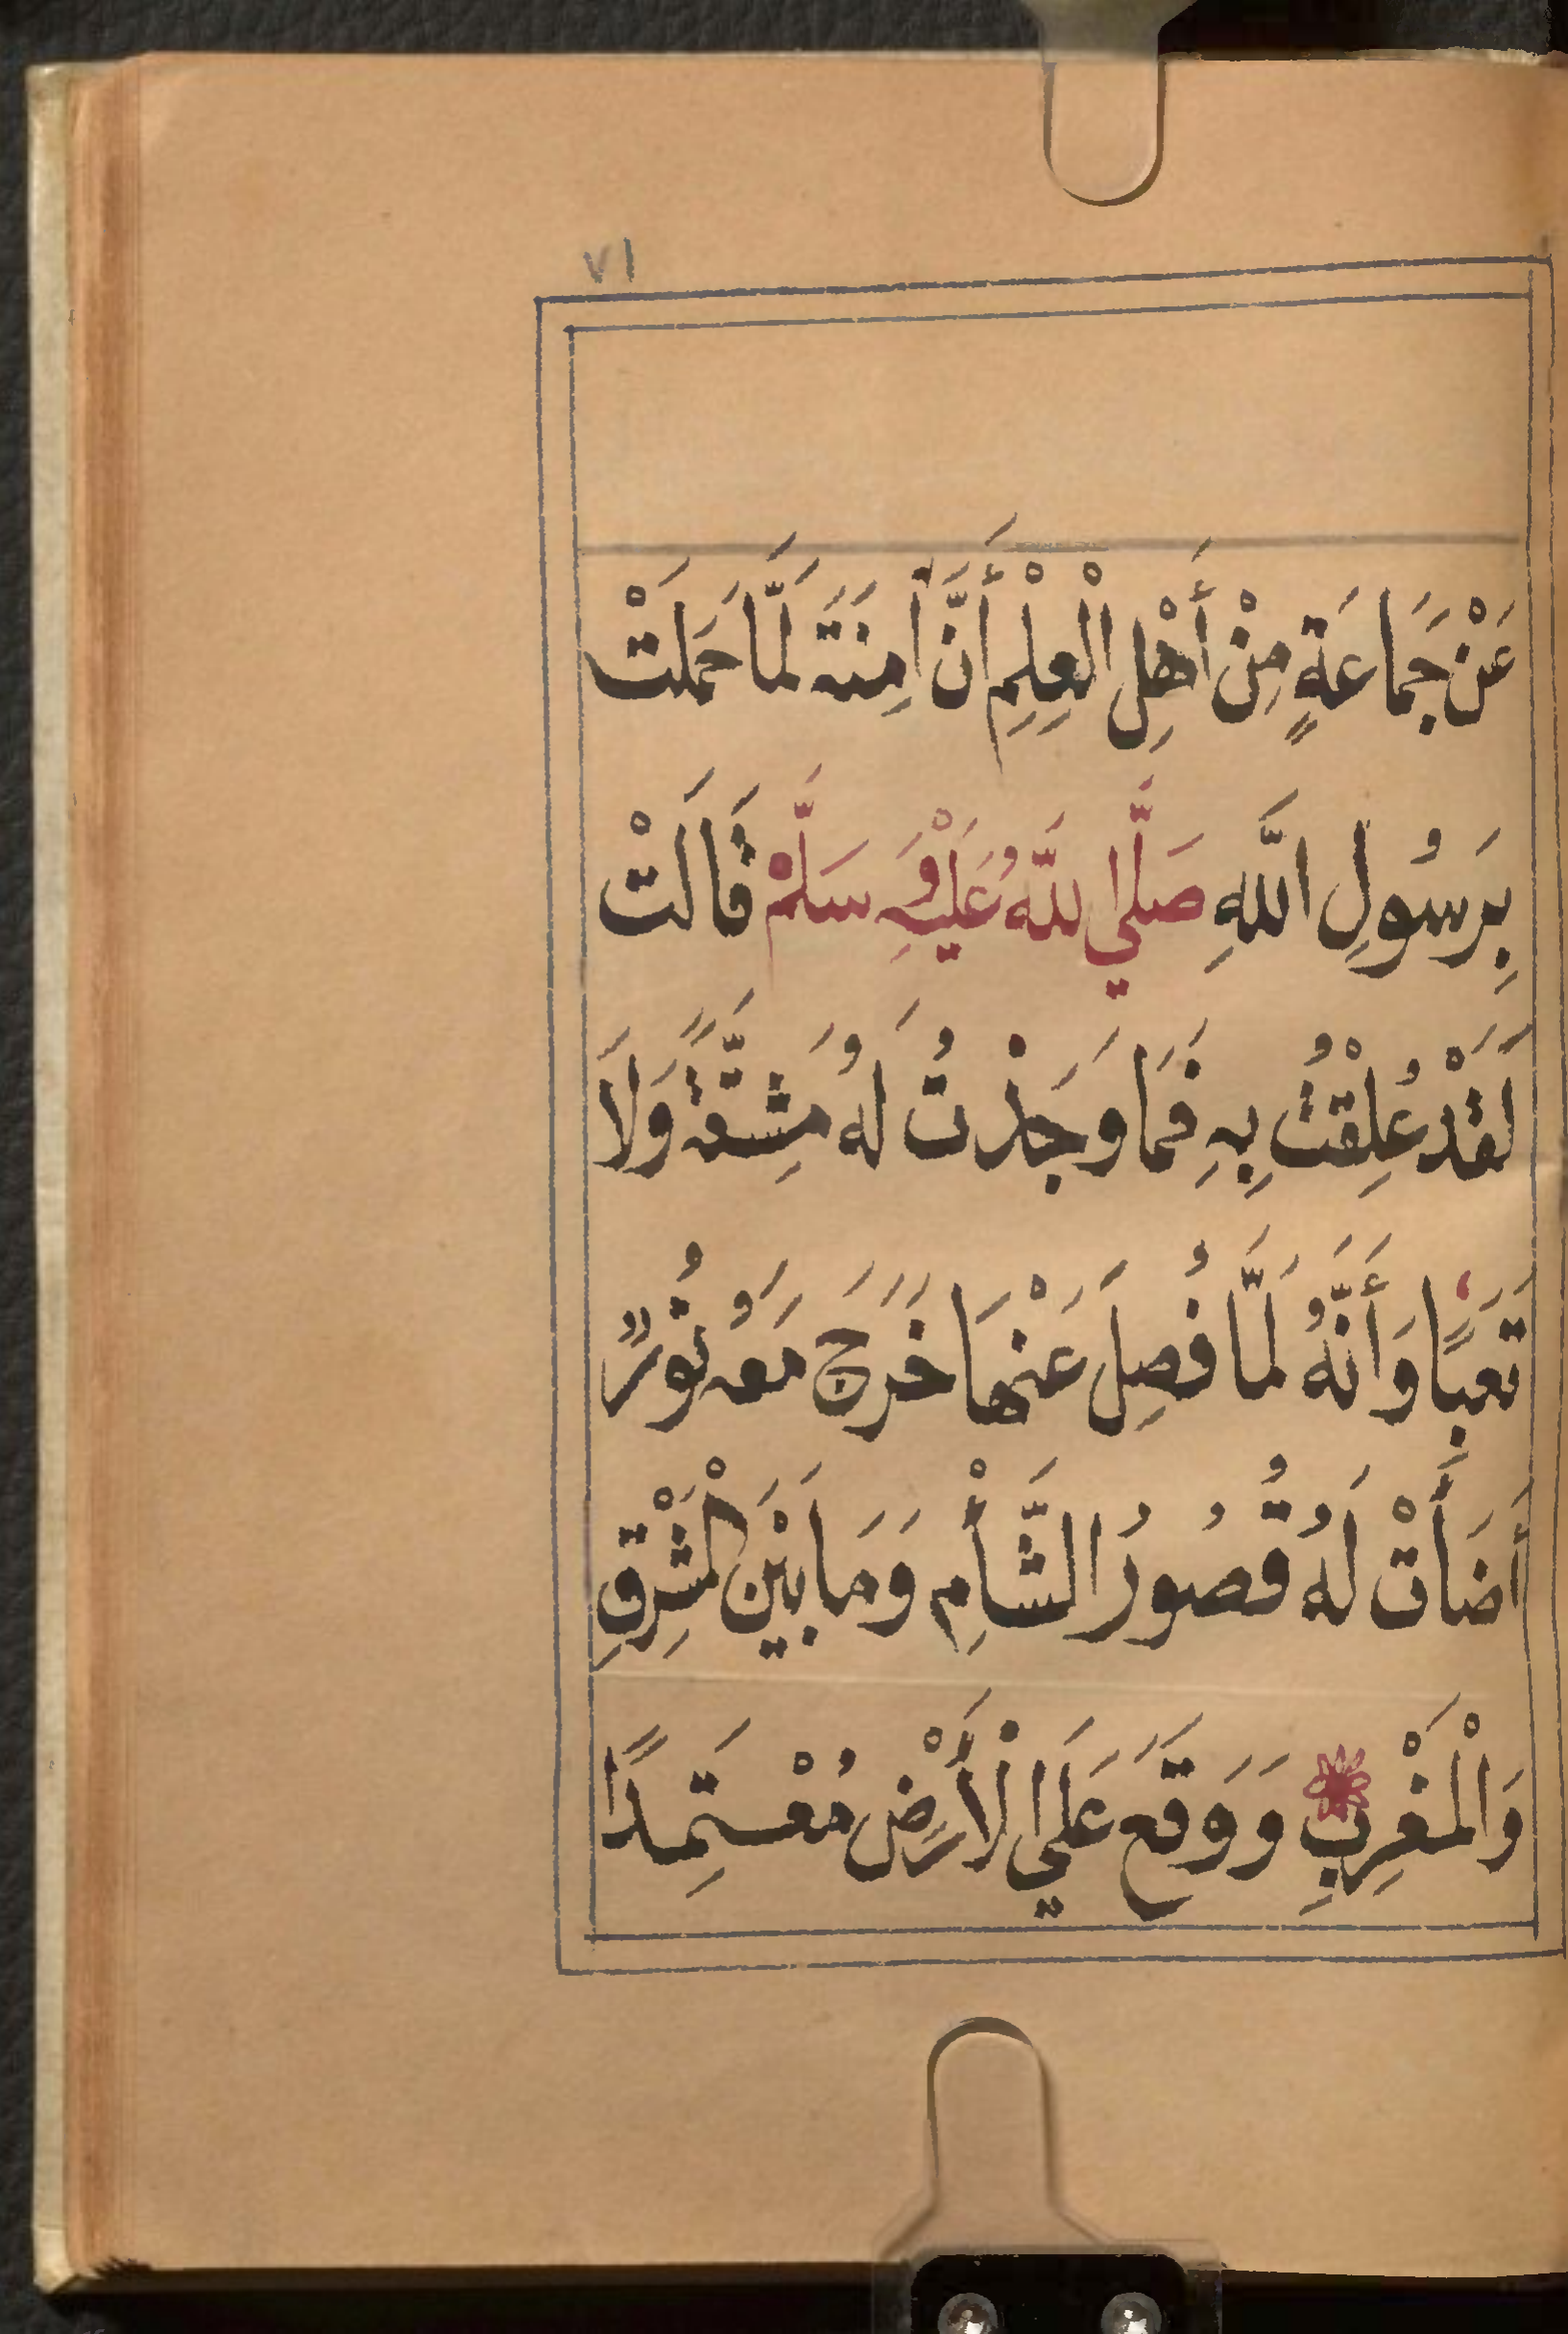 ٧١
عَنْ جَمَاعَةٍ مِنْ أَهْلِ الْعِلْمِ أَنَّ اٰمِنَةَ لَمَّا حَمَلَتْ
بِرَسُولِ اللَّهِ صَلَّي للَّهُ عَلَيْهِ وَسَلَّمْ قَالَتْ
لَقَدْ عُلِقْتُ بِهِ فَمَا وَجَذْتُ لَهُ مَشِقَّةً وَلَا
تَعَبًا وَأَنَّهُ لَمَّا فُصِلَ عَنْهَا خَرَجَ مَعَهُ نُوْرٌ
أَضَأَتْ لَهُ قُصُورُ الشَّأْمِ وَمَا بَيْنَ الْمَشْرِقِ
وَالْمَغْرِبِ وَوَقَعَ عَلَي الْأَرْضِ مُعْتَمِدًا